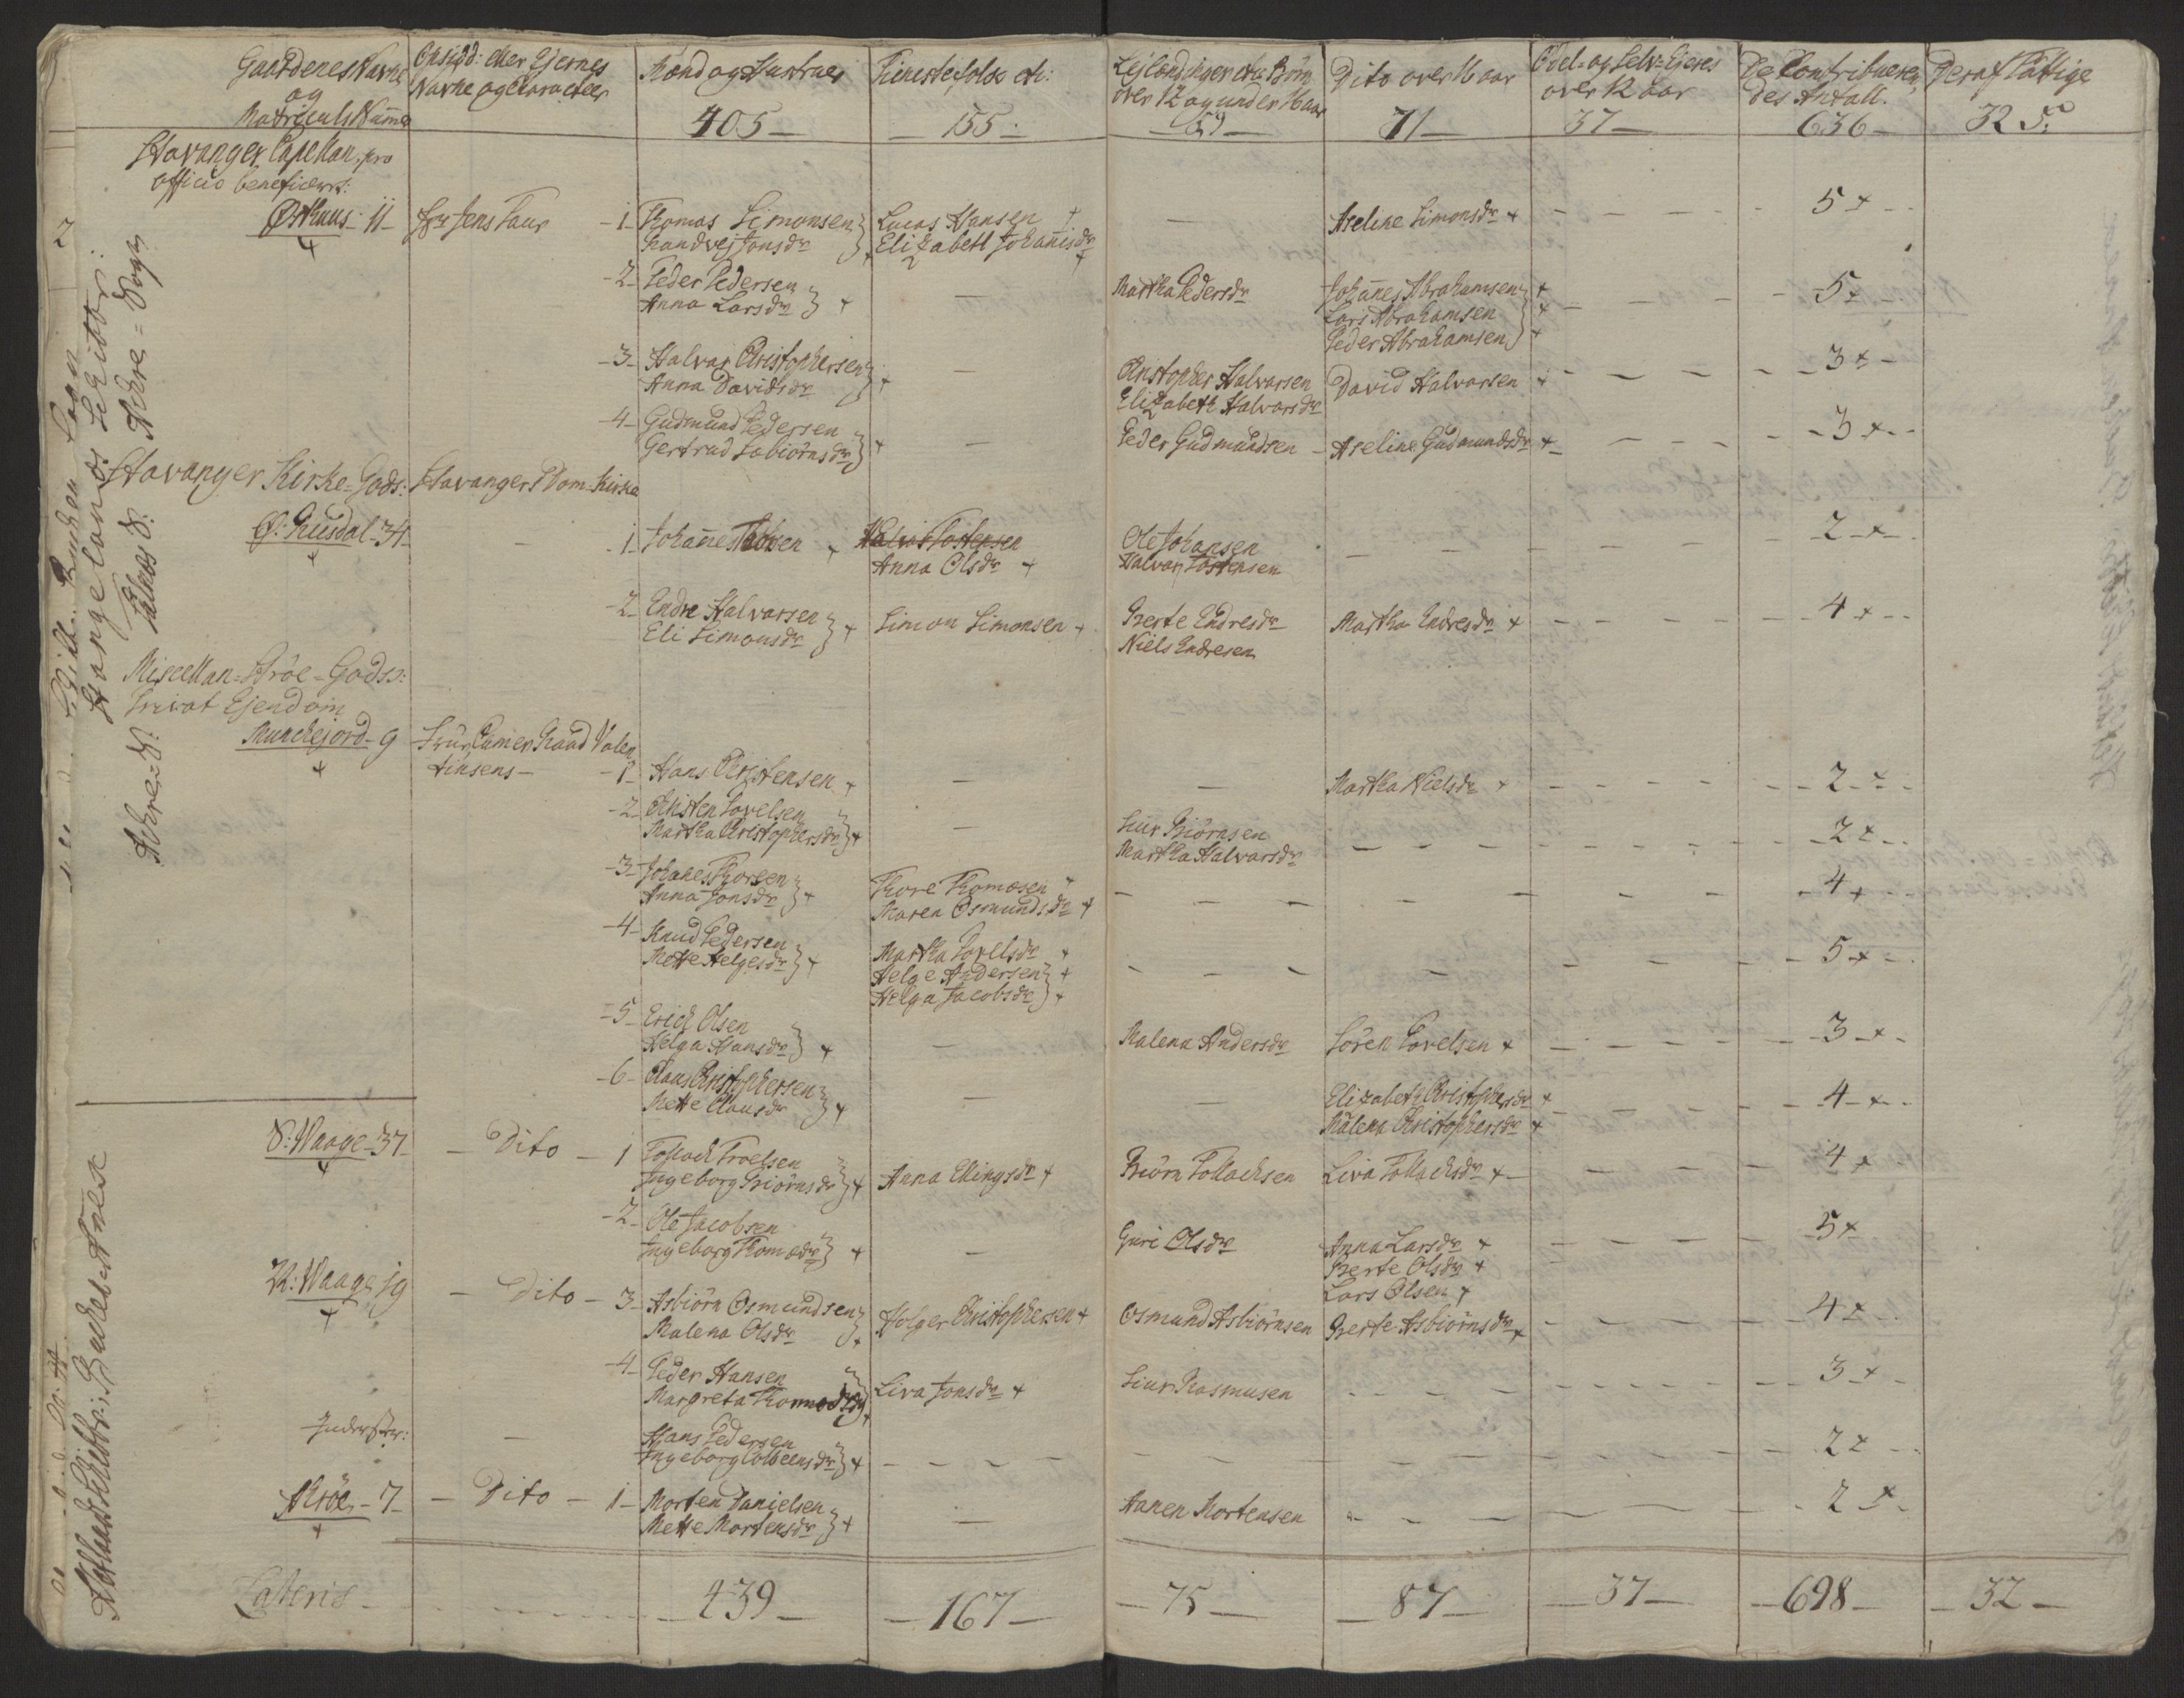 Gaardenes Navne
og
Matriculs Numer
Opsidd: eller Ejernes
Navne og Caracteer
Mænd og Hustruer
405
Tienestefolk etc:
155
Lejlændinger etc Børn
over 12 og under 16 aar
59
Dito over 16 aar
71
Odel- og Selv-Ejeres
over 12 aar
37
De Contribueren
des Antall.
636
Deraf Fattige
32 S.
Stavanger Capellan pro
officio beneficeret:
2
Østhuus - 11 - Hr Jens Faur
- 1 - Thomas Simonsen
Randvej Jonsdr
Lucas Hansen +
Elizabeth Johanisdr +
—
Aseline Simonsdr +
5 +
- 2 - Peder Pedersen
Anna Larsdr } +
—
Martha Pedersdr
Johanes Abrahamsen +
Lars Abrahamsen +
Peder Abrahamsen +
5 +
- 3 - Halvar Christophersen
Anna Davidsdr } +
—
Christopher Halvarsen
Elizabeth Halvarsdr
David Halvarsen +
3 +
- 4 - Gudmund Pedersen
Gertrud Torbiörnsdr } +
—
Peder Gudmundsen
Aseline Gudmundsdr +
3 +
Stavanger Kirke-Gods: Stavanger Dom-Kirke
Ø: Husdal - 34
- 1 - Johannes Thorsen +
Halvar Tostensen
Anna Olsdr +
Ole Johansen
Halvar Tostensen
2 +
- 2 - Endre Halvarsen
Eli Simonsdr } +
Simon Simonsen +
Berte Endresdr
Niels Endresen
Martha Endresdr +
4 +
Miscellan-Strøe-Gods:
Privat Ejendom
Munckejord - 9
Frue Camer Raad Valen
tinsens -
- 1 - Hans Christensen +
—
—
Martha Nielsdr +
2 +
- 2 - Christen Povelsen
Martha Christophersdr } +
—
Siur Biörnsen
Martha Halvarsdr
2 +
- 3 - Johanes Thorsen
Anna Jonsdr } +
Thore Thomæsen +
Maren Osmundsdr +
4 +
- 4 - Knud Pedersen
Mette Helgesdr } +
Martha Povelsdr +
Helge Andersen +
Helga Jacobsdr +
5 +
- 5 - Erich Olsen
Helga Hansdr } +
—
Malena Andersdr
Sören Povelsen +
3 +
- 6 - Claus Christophersen
Mette Clausdr } +
—
—
Elizabeth Christophersdr +
Malena Christophersdr +
4 +
S: Waage - 37 - Dito
- 1 Tollach Troelsen
Ingeborg Biörnsdr } +
Anna Ellingsdr +
Biörn Tollachsen
Liva Tollachsdr +
4 +
- 2 - Ole Jacobsen
Ingeborg Thomædr } +
—
Guri Olsdr
Anna Larsdr +
Berte Olsdr +
Lars Olsen +
5 +
N: Waage 19 - Dito
- 3 - Asbiörn Osmundsen
Malena Olsdr } +
Holger Christophersen +
Osmund Asbiörnsen
Berte Asbiörnsdr +
4 +
- 4 - Peder Hansen
Margreta
Liva Jonsdr +
Siur Rasmusen
3 +
Inderster:
Hans Pedersen
Ingeborg Colbeensdr } +
2 +
Kröe - 7 - Dito
- 1 - Morten Danielsen
Mette Mortensdr } +
—
Hanen Mortensen
2 +
Lateris
439
167
75
87
37
698
32